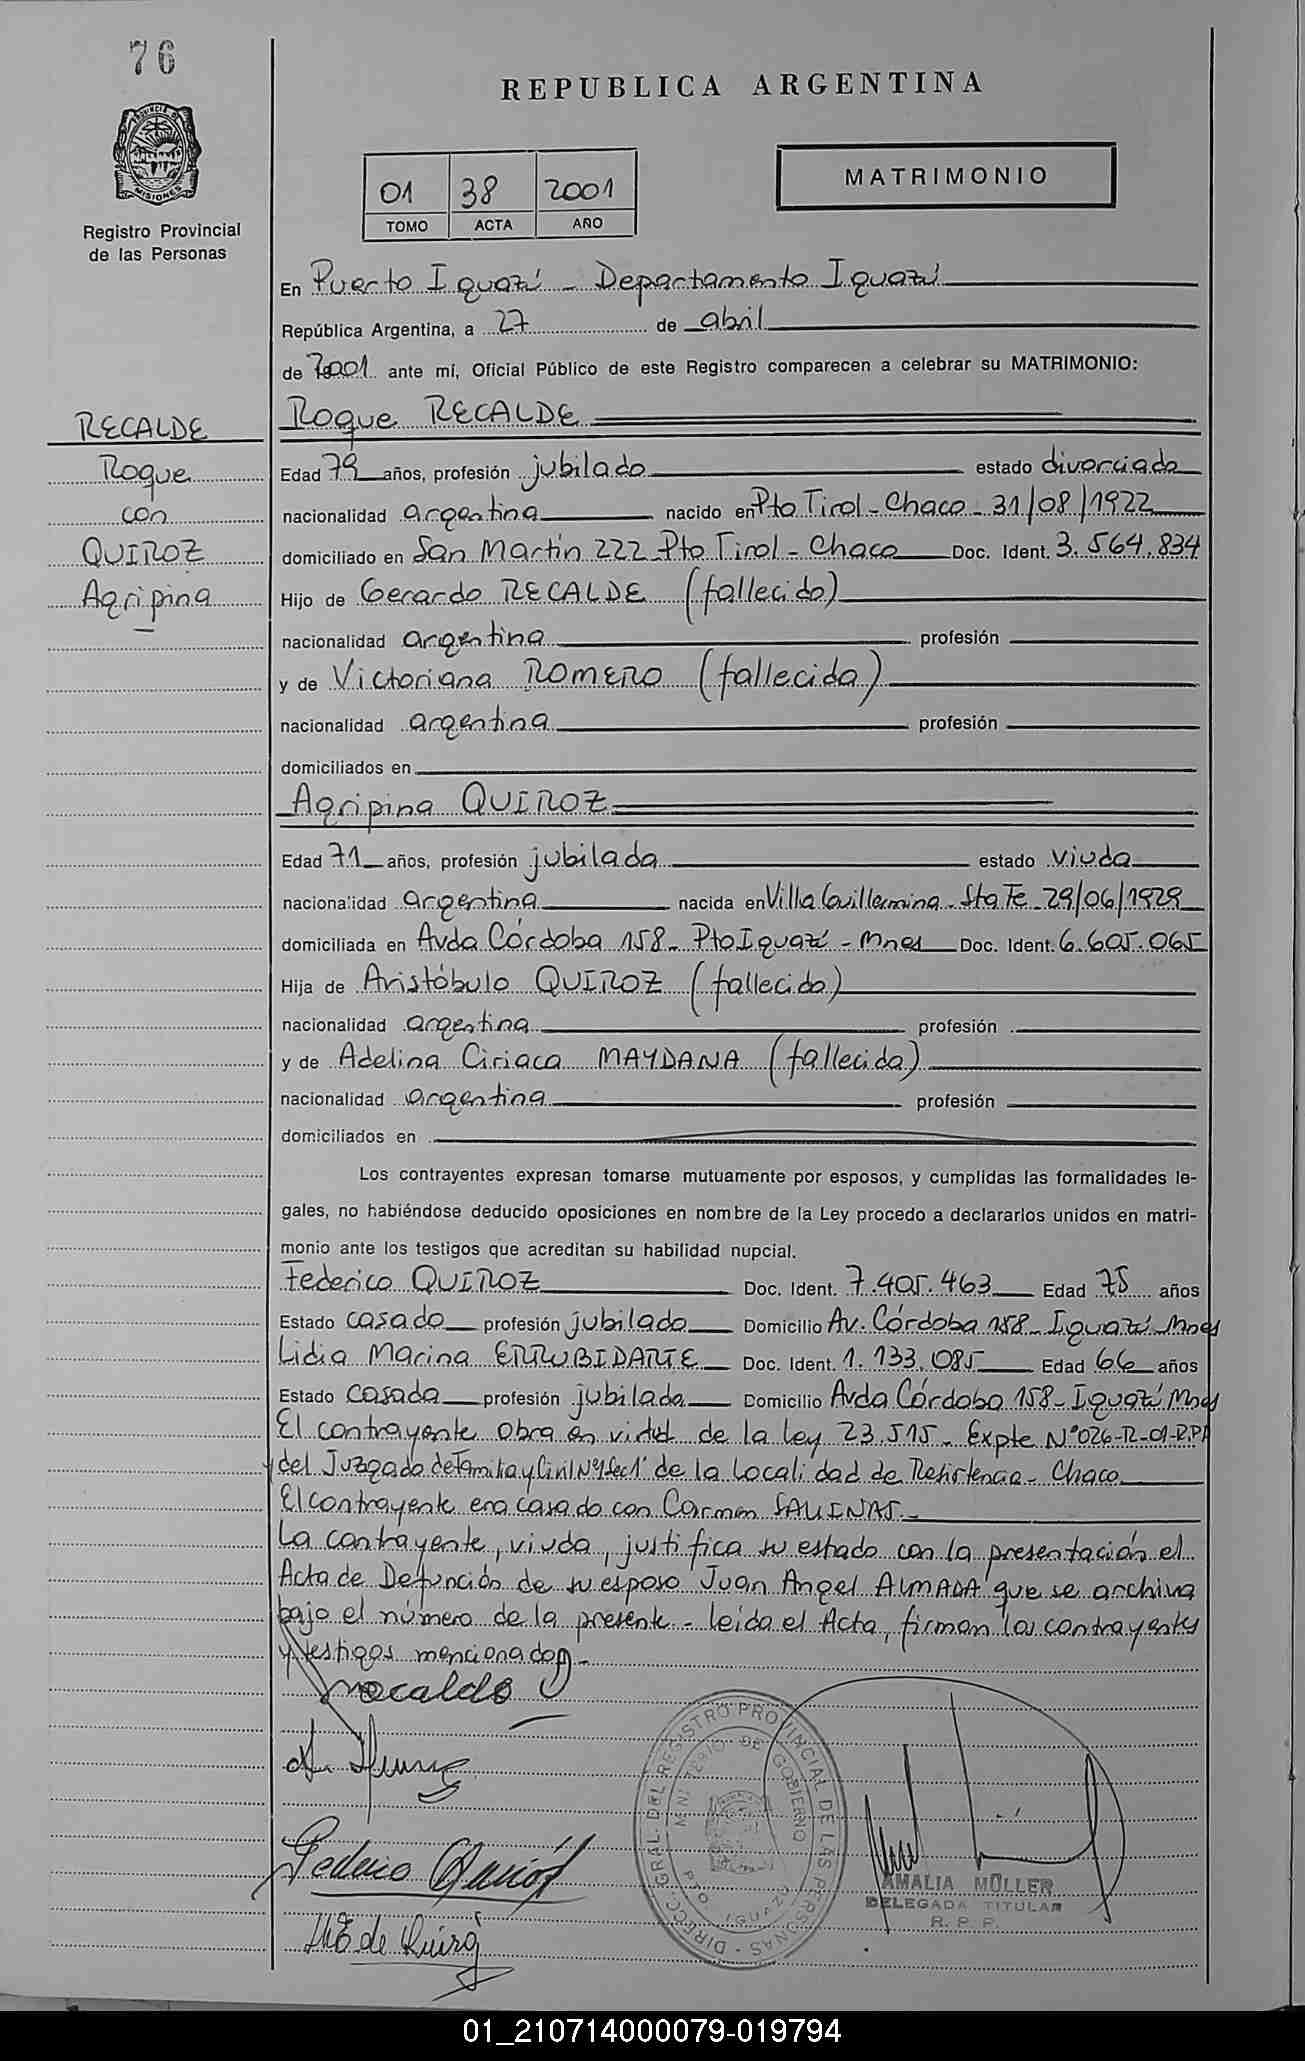 76
REPUBLICA ARGENTINA
PROVINCIA DE MISIONES
Registro Provincial
de las Personas
01 38 2001
TOMO ACTA AÑO
MATRIMONIO
En Puerto Iguazú - Departamento Iguazú
República Argentina, a 27 de abril
de 2001 ante mí, Oficial Público de este Registro comparecen a celebrar su MATRIMONIO:
RECALDE
Roque
con
QUIROZ
Agripina
Roque RECALDE
Edad 79 años, profesión jubilado estado divorciado
nacionalidad argentina nacido en Pto Tirol - Chaco - 31/08/1922
domiciliado en San Martín 222 Pto Tirol - Chaco Doc. Ident. 3.564.834
Hijo de Gerardo RECALDE (fallecido)
nacionalidad argentina profesión
y de Victoriana ROMERO (fallecida)
nacionalidad argentina profesión
domiciliados en
Agripina QUIROZ
Edad 71 años, profesión jubilada estado viuda
nacionalidad argentina nacida en Villa Guillermina - Sta Fe - 29/06/1929
domiciliada en Avda Córdoba 158 - Pto Iguazú - Mnes Doc. Ident. 6.605.065
Hija de Aristóbulo QUIROZ (fallecido)
nacionalidad argentina profesión
y de Adelina Ciriaca MAYDANA (fallecida)
nacionalidad argentina profesión
domiciliados en
Los contrayentes expresan tomarse mutuamente por esposos, y cumplidas las formalidades le-
gales, no habiéndose deducido oposiciones en nombre de la Ley procedo a declararlos unidos en matri-
monio ante los testigos que acreditan su habilidad nupcial.
Federico QUIROZ Doc. Ident. 7.405.463 Edad 75 años
Estado casado profesión jubilado Domicilio Av. Córdoba 158 - Iguazú - Mnes
Lidia Marina ERRUBIDARTE Doc. Ident. 1.133.085 Edad 66 años
Estado casada profesión jubilada Domicilio Avda Córdoba 158 - Iguazú Mnes
El contrayente obra en virtud de la ley 23.515 - Expte Nº 026-R-01-R.P.P
del Juzgado de Familia y Civil Nº 1 Sec 1 de la Localidad de Resistencia - Chaco
El contrayente era casado con Carmen SALINAS.-
La contrayente, viuda, justifica su estado con la presentación el
Acta de Defunción de su esposo Juan Angel ALMADA que se archiva
bajo el número de la presente - leída el Acta, firman los contrayentes
y testigos mencionados.-
Recalde
Federico Quiróz
de Quiróz
DIRECC. GRAL. DEL REGISTRO PROVINCIAL DE LAS PERSONAS
MINISTERIO DE GOBIERNO
PTO. IGUAZU
AMALIA MÜLLER
DELEGADA TITULAR
R. P. P.
01_210714000079-019794